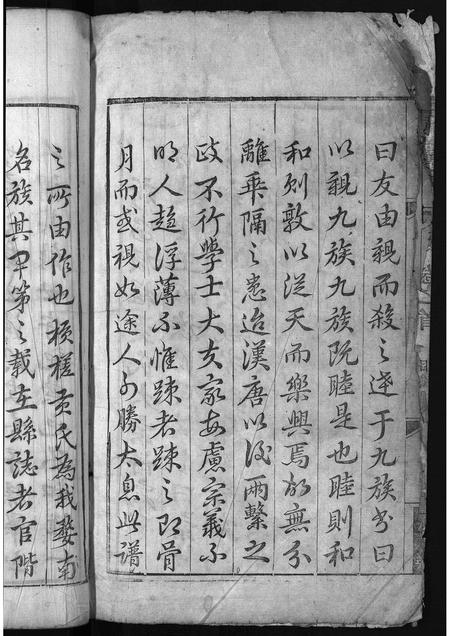 曰友由親而殺之逹于九族书曰
以親九族九族既睦是也睦則和
和则敦以従天而樂興焉故無分
離乖隔之患迨漢唐以後两繫之
政不行學士大夫家每慮宗義不
明人趋浮薄不惟踈者踈之即骨
月而或視如途人可勝太息此譜
之所由作也横槎黄氏為我婺南
名族其甲第之载在縣誌者官階